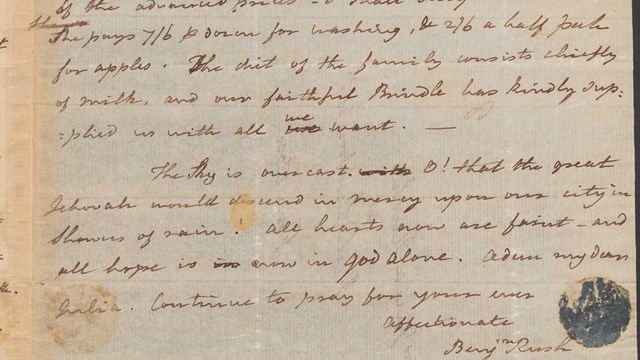 of the advanced prices – I shall
She pays 7/6 p dozen for washing, & 2/6 a half peck
for apples. The diet of the family consists chiefly
of milk, and our faithful Brindle has kindly sup:
=plied us with all we want. —
The Sky is overcast. with O! that the great
Jehovah would descend in mercy upon our city in
Showers of rain! All hearts now are faint – and
all hope is in now in god alone. Adieu my dear
Julia. Continue to pray for your ever
affectionate
Benjn Rush